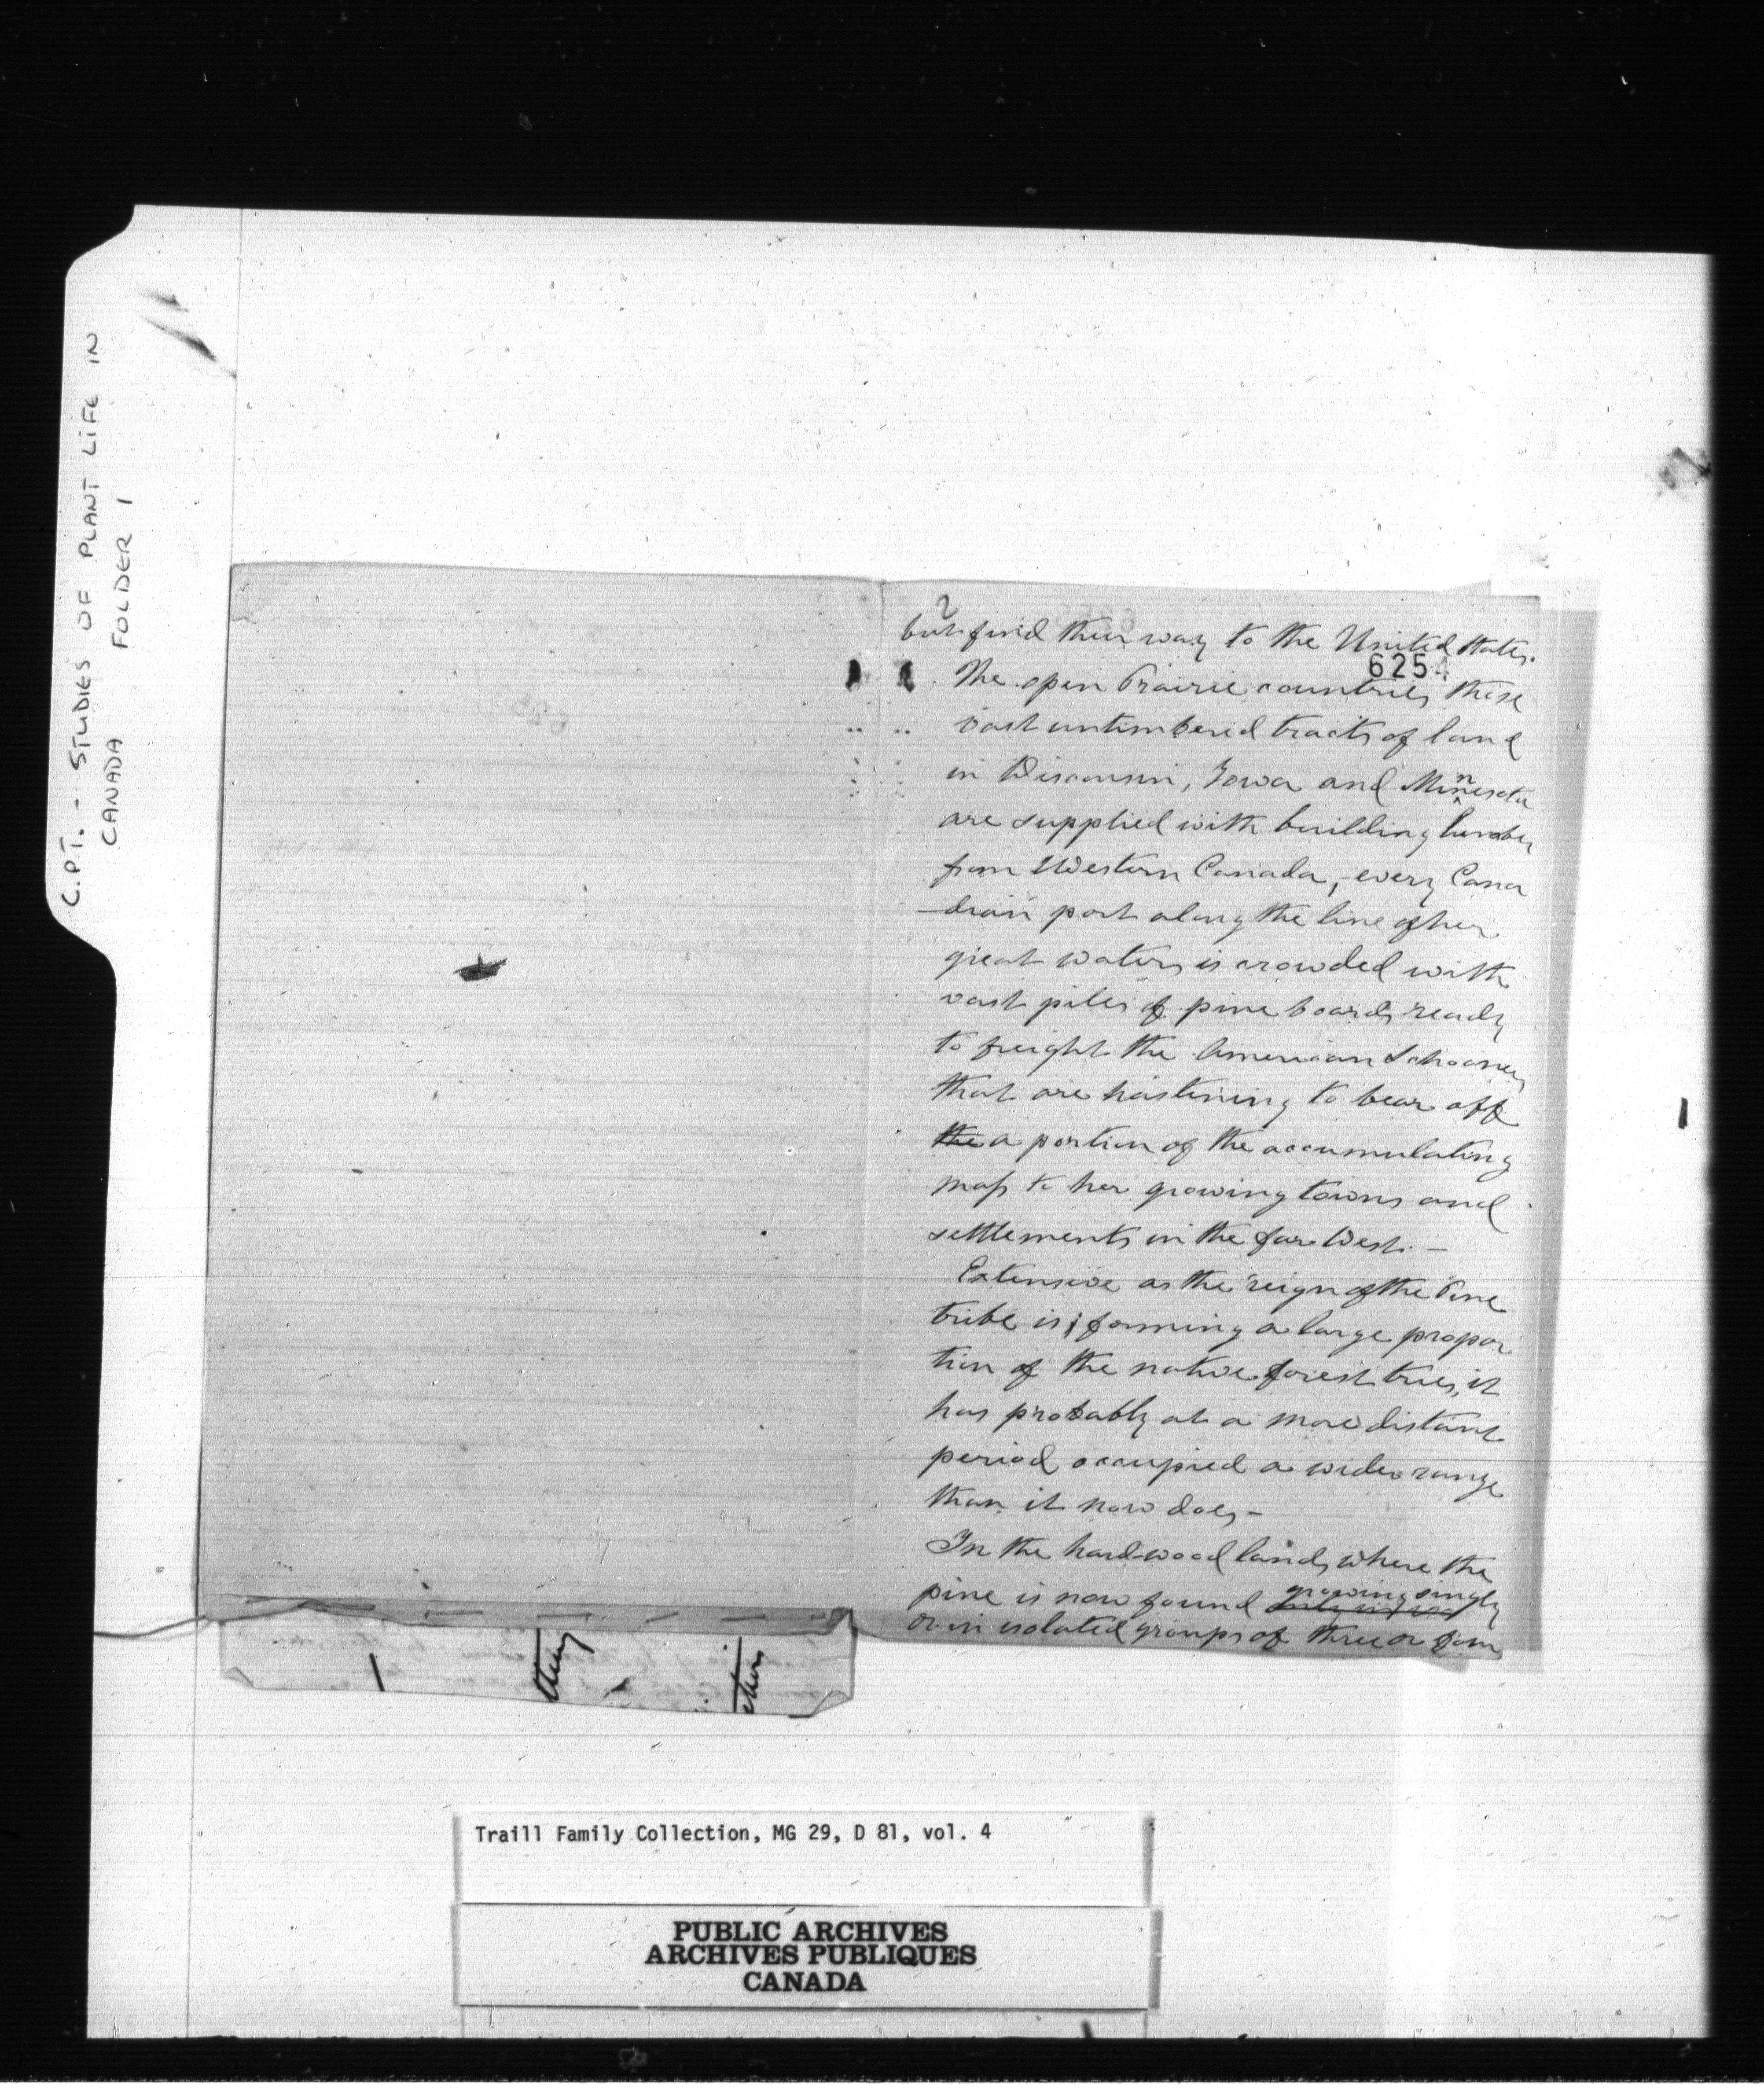 C.P.T. - STUDIES OF PLANT LIFE IN
CANADA FOLDER 1
2
but find their way to the United States.
6254
The open Prairie countries these
vast untimbered tracts of land
in Wisconsin, Iowa and Minnesota
are supplied with building lumber
from Western Canada, - every Cana
-dian port along the line of her
great waters is crowded with
vast piles of pine boards ready
to freight the American Schooners
that are hastening to bear off
the a portion of the accumulating
mass to her growing towns and
settlements in the far West. -
Extensive as the reign of the Pine
tribe is; forming a large propor
tion of the native forest trees, it
has probably at a more distant
period occupied a wider range
than it now does -
In the hard-wood lands where the
pine is now found growing singly
or in isolated groups of three or four
Traill Family Collection, MG 29, D 81, vol. 4
PUBLIC ARCHIVES
ARCHIVES PUBLIQUES
CANADA